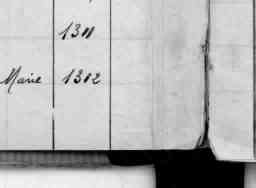 1311
Marie 1312